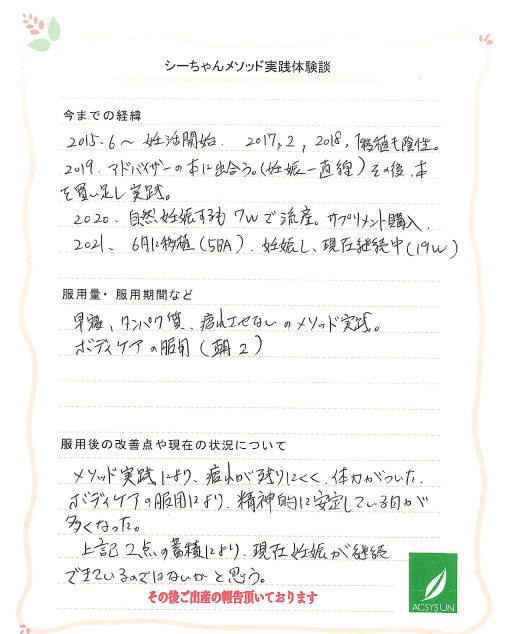 シーちゃんメソッド実践体験談
今までの経緯
2015.6〜 妊活開始. 2017,2, 2018, 移植も陰性。
2019. アドバイザーの本に出会う。(妊娠一直線) その後、本
を買い足し実践。
2020、自然妊娠するも 7wで流産。サプリメント購入.
2021、 6月に移植(5BA). 妊娠し、現在継続中(19w)
服用量・服用期間など
早寝、タンパク質、疲れさせないのメソッド実践。
ボディケアの服用(朝2)
服用後の改善点や現在の状況について
メソッド実践により、疲れが残りにくく、体力がついた.
ボディケアの服用により、精神的に安定している日が
多くなった。
上記2点の蓄積により、現在妊娠が継続
できているのではないかと思う。
その後ご出産の報告頂いております
ACSYSUN